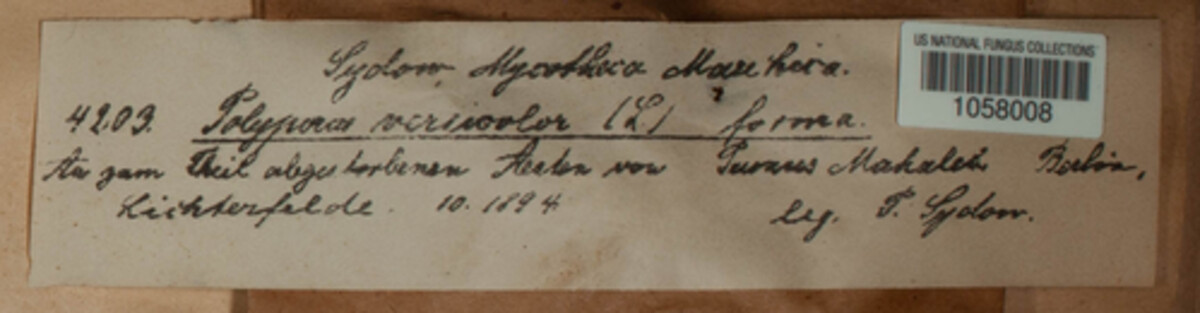 Sydow, Mycotheca Marchica.
US NATIONAL FUNGUS COLLECTIONS
1058008
4203. Polyporus versicolor (L) forma.
An zum Theil abgestorbenen Aesten von Prunus Mahaleb Berlin,
Lichterfelde. 10. 1894 leg. P. Sydow.